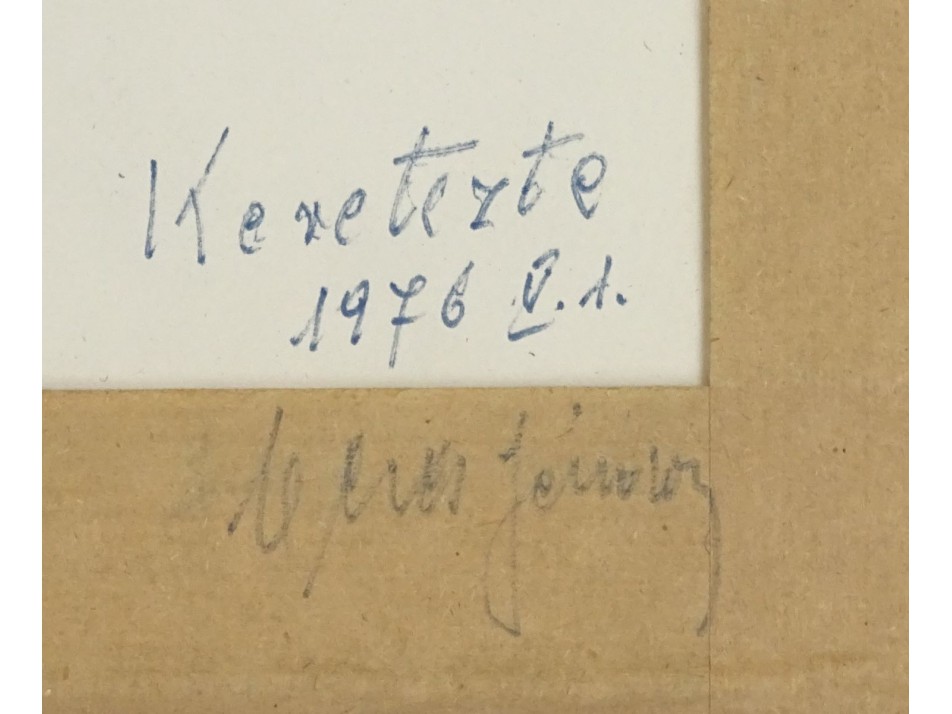 Keretezte
1976 V. 1.
János